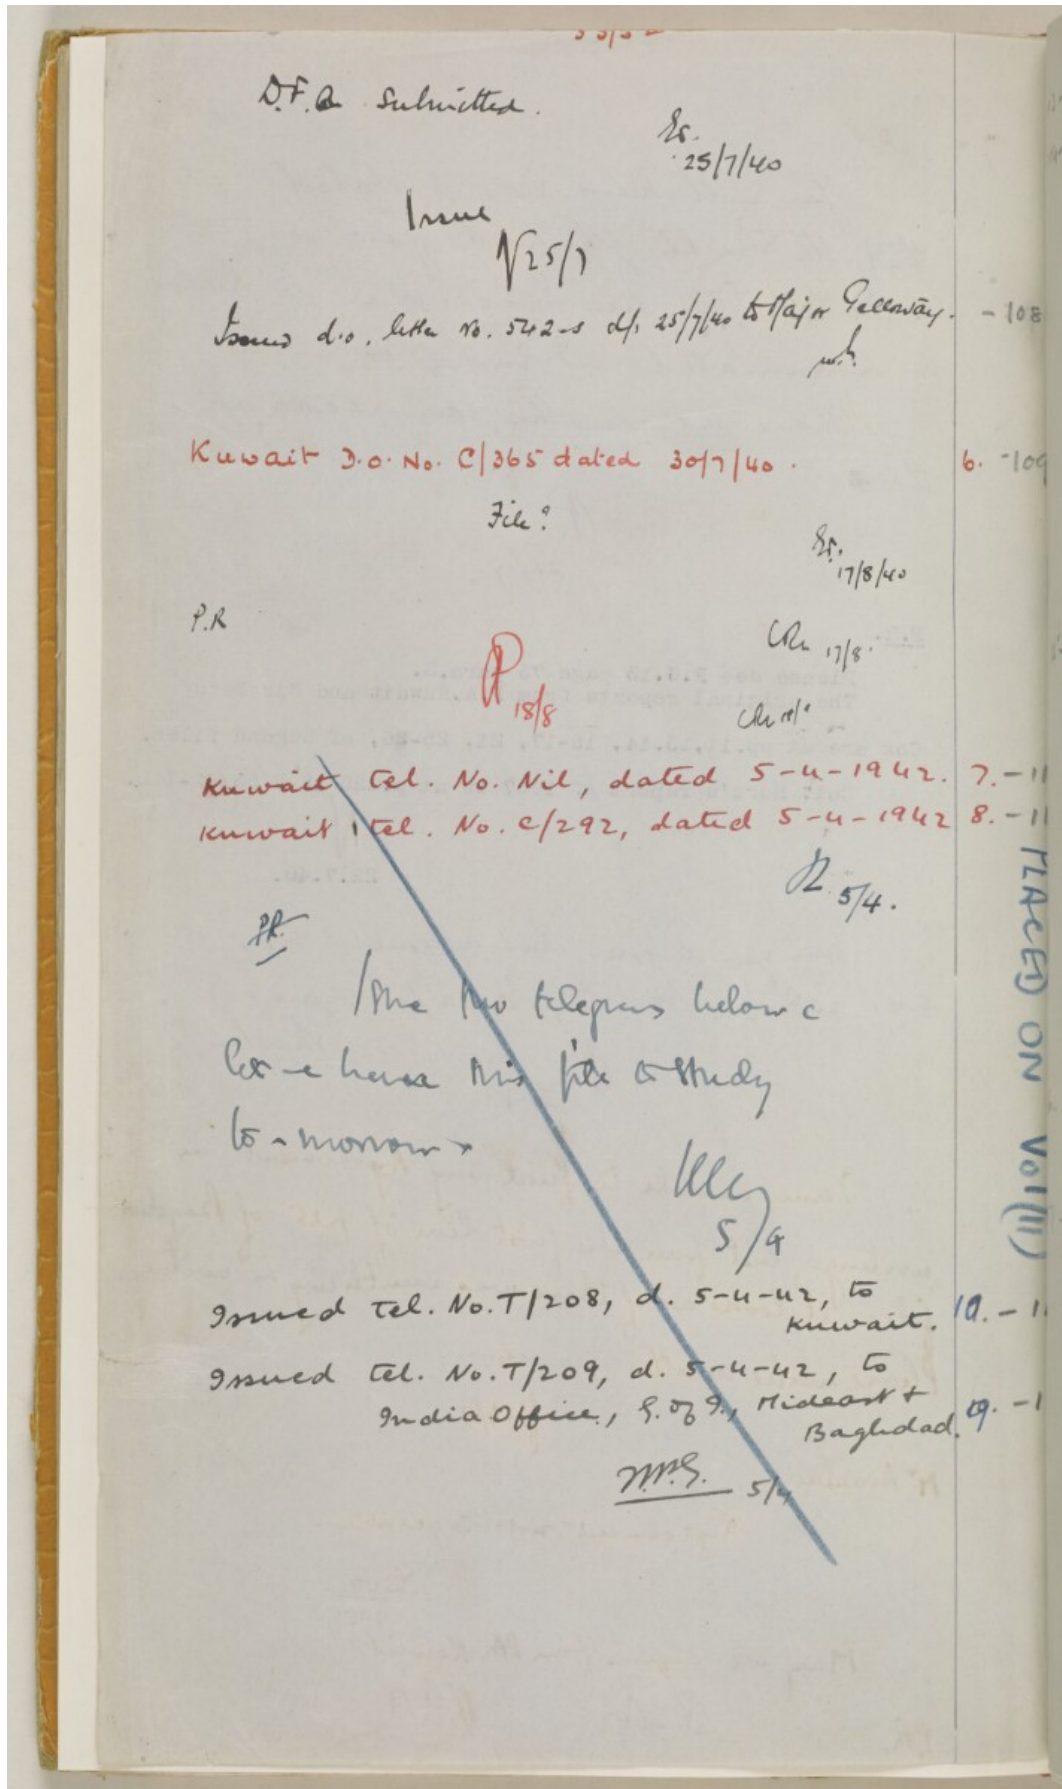 D.F.A Submitted.
25/7/40
Issue
25/7
Issued d.o. letter No. 542-S d/. 25/7/40 to Major Galloway. - 108
Kuwait D.O. No. C/365 dated 30/7/40. 6. -109
File?
17/8/40
P.R
17/8.
18/8
Kuwait tel. No. Nil, dated 5-4-1942. 7. - 11
Kuwait tel. No. C/292, dated 5-4-1942 8. - 11
5/4.
PR.
two telegrams below
let me have this file to study
to-morrow
5/4
Issued tel. No. T/208, d. 5-4-42, to
Kuwait. 10. - 1
Issued tel. No. T/209, d. 5-4-42, to
India Office, G. of I., Mideast +
Baghdad. 9. - 1
5/4
PLACED ON Vol (II)